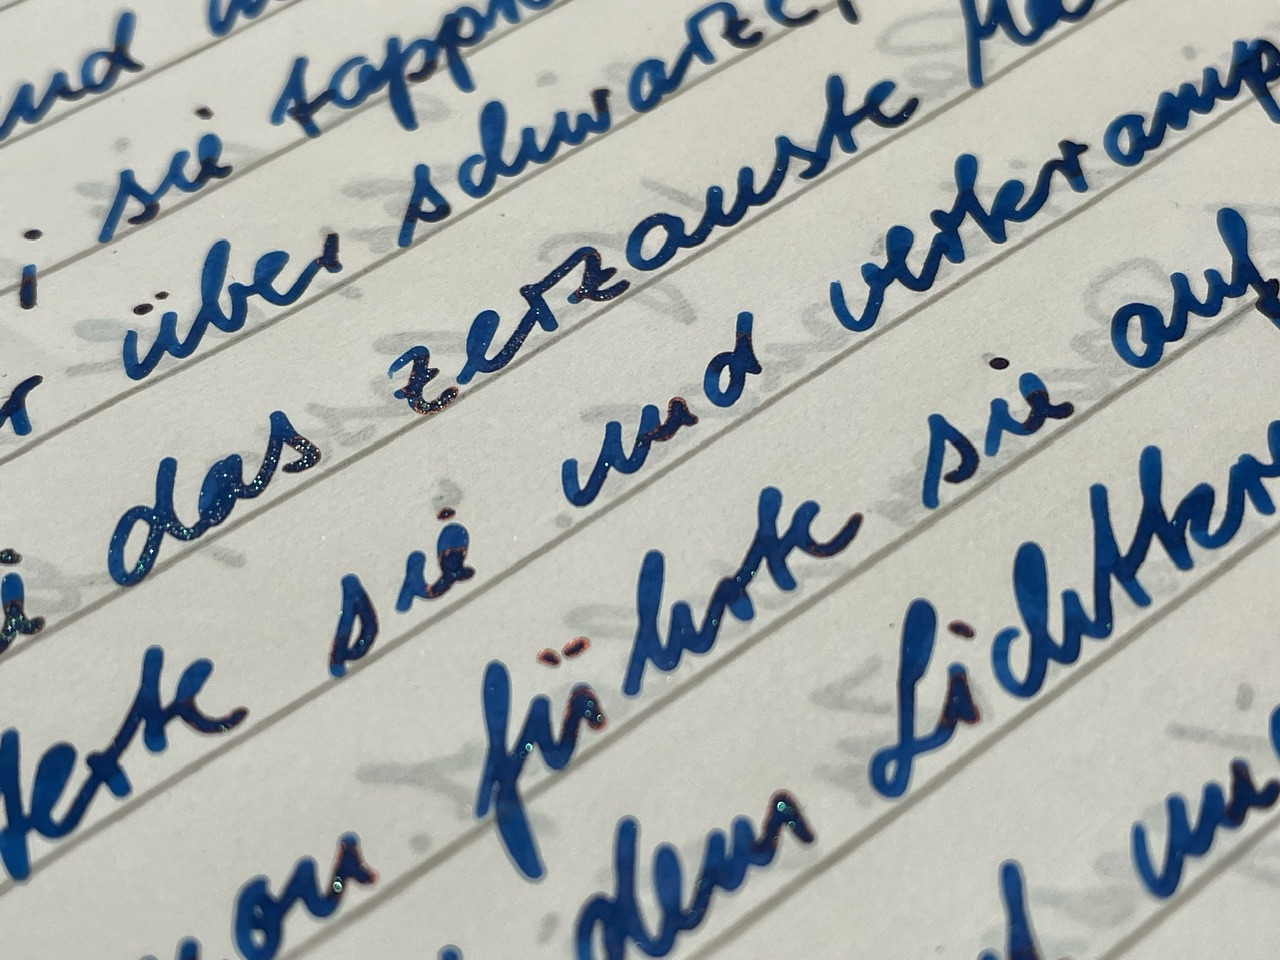 und
sie
über schwarzer
das zerzauste
sie und verkramp
von führte sie auf
dem Lichtkre